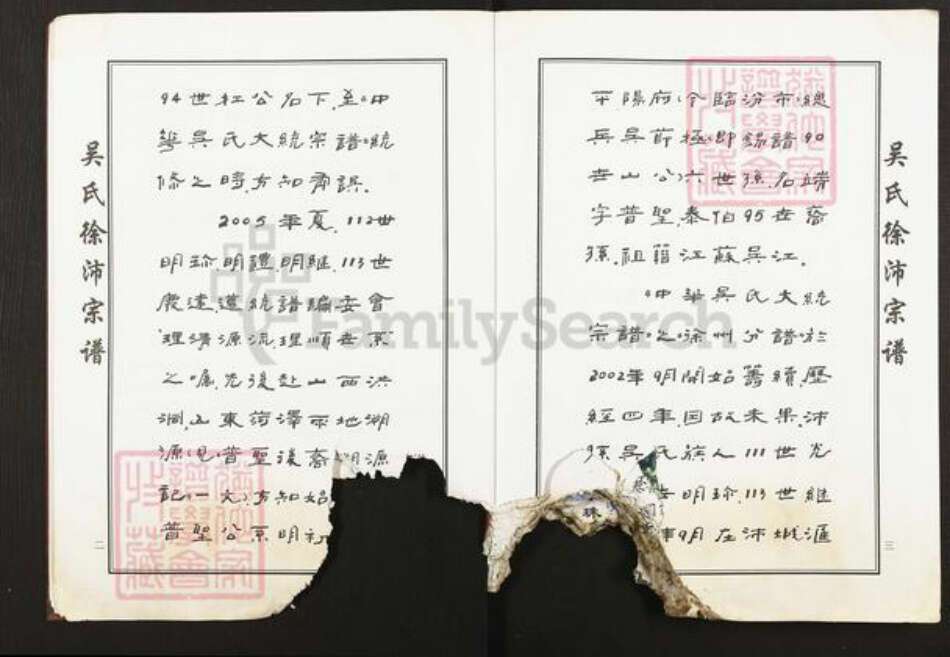 吴氏徐沛宗谱
94世红公名下.至《中
华吴氏大統宗譜》統
修之時,方知有誤.
2005年夏,112世
明珍.明禮.明継,113世
慶達,遵統譜編委會
理清源流理順世系
之嘱,先後赴山西洪
洞.山東菏澤两地溯
源.見《普聖後裔溯源
記》一文,方知始
普聖公系明初
二
平陽府(今臨汾市)總
兵吴節極,即錫譜90
世山公六世孫.名端
字普聖,泰伯95世裔
孫.祖籍江蘇吴江.
《中華吴氏大統
宗譜》之《徐州分譜》於
2002年9月開始籌續,歷
經四年,因故未果.沛
孫吴氏族人111世光
明珍,113世継
年9月在沛城滙
珠
三
吴氏徐沛宗谱
FamilySearch